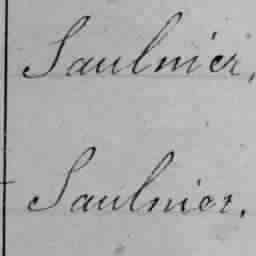 Saulnier,
Saulnier.